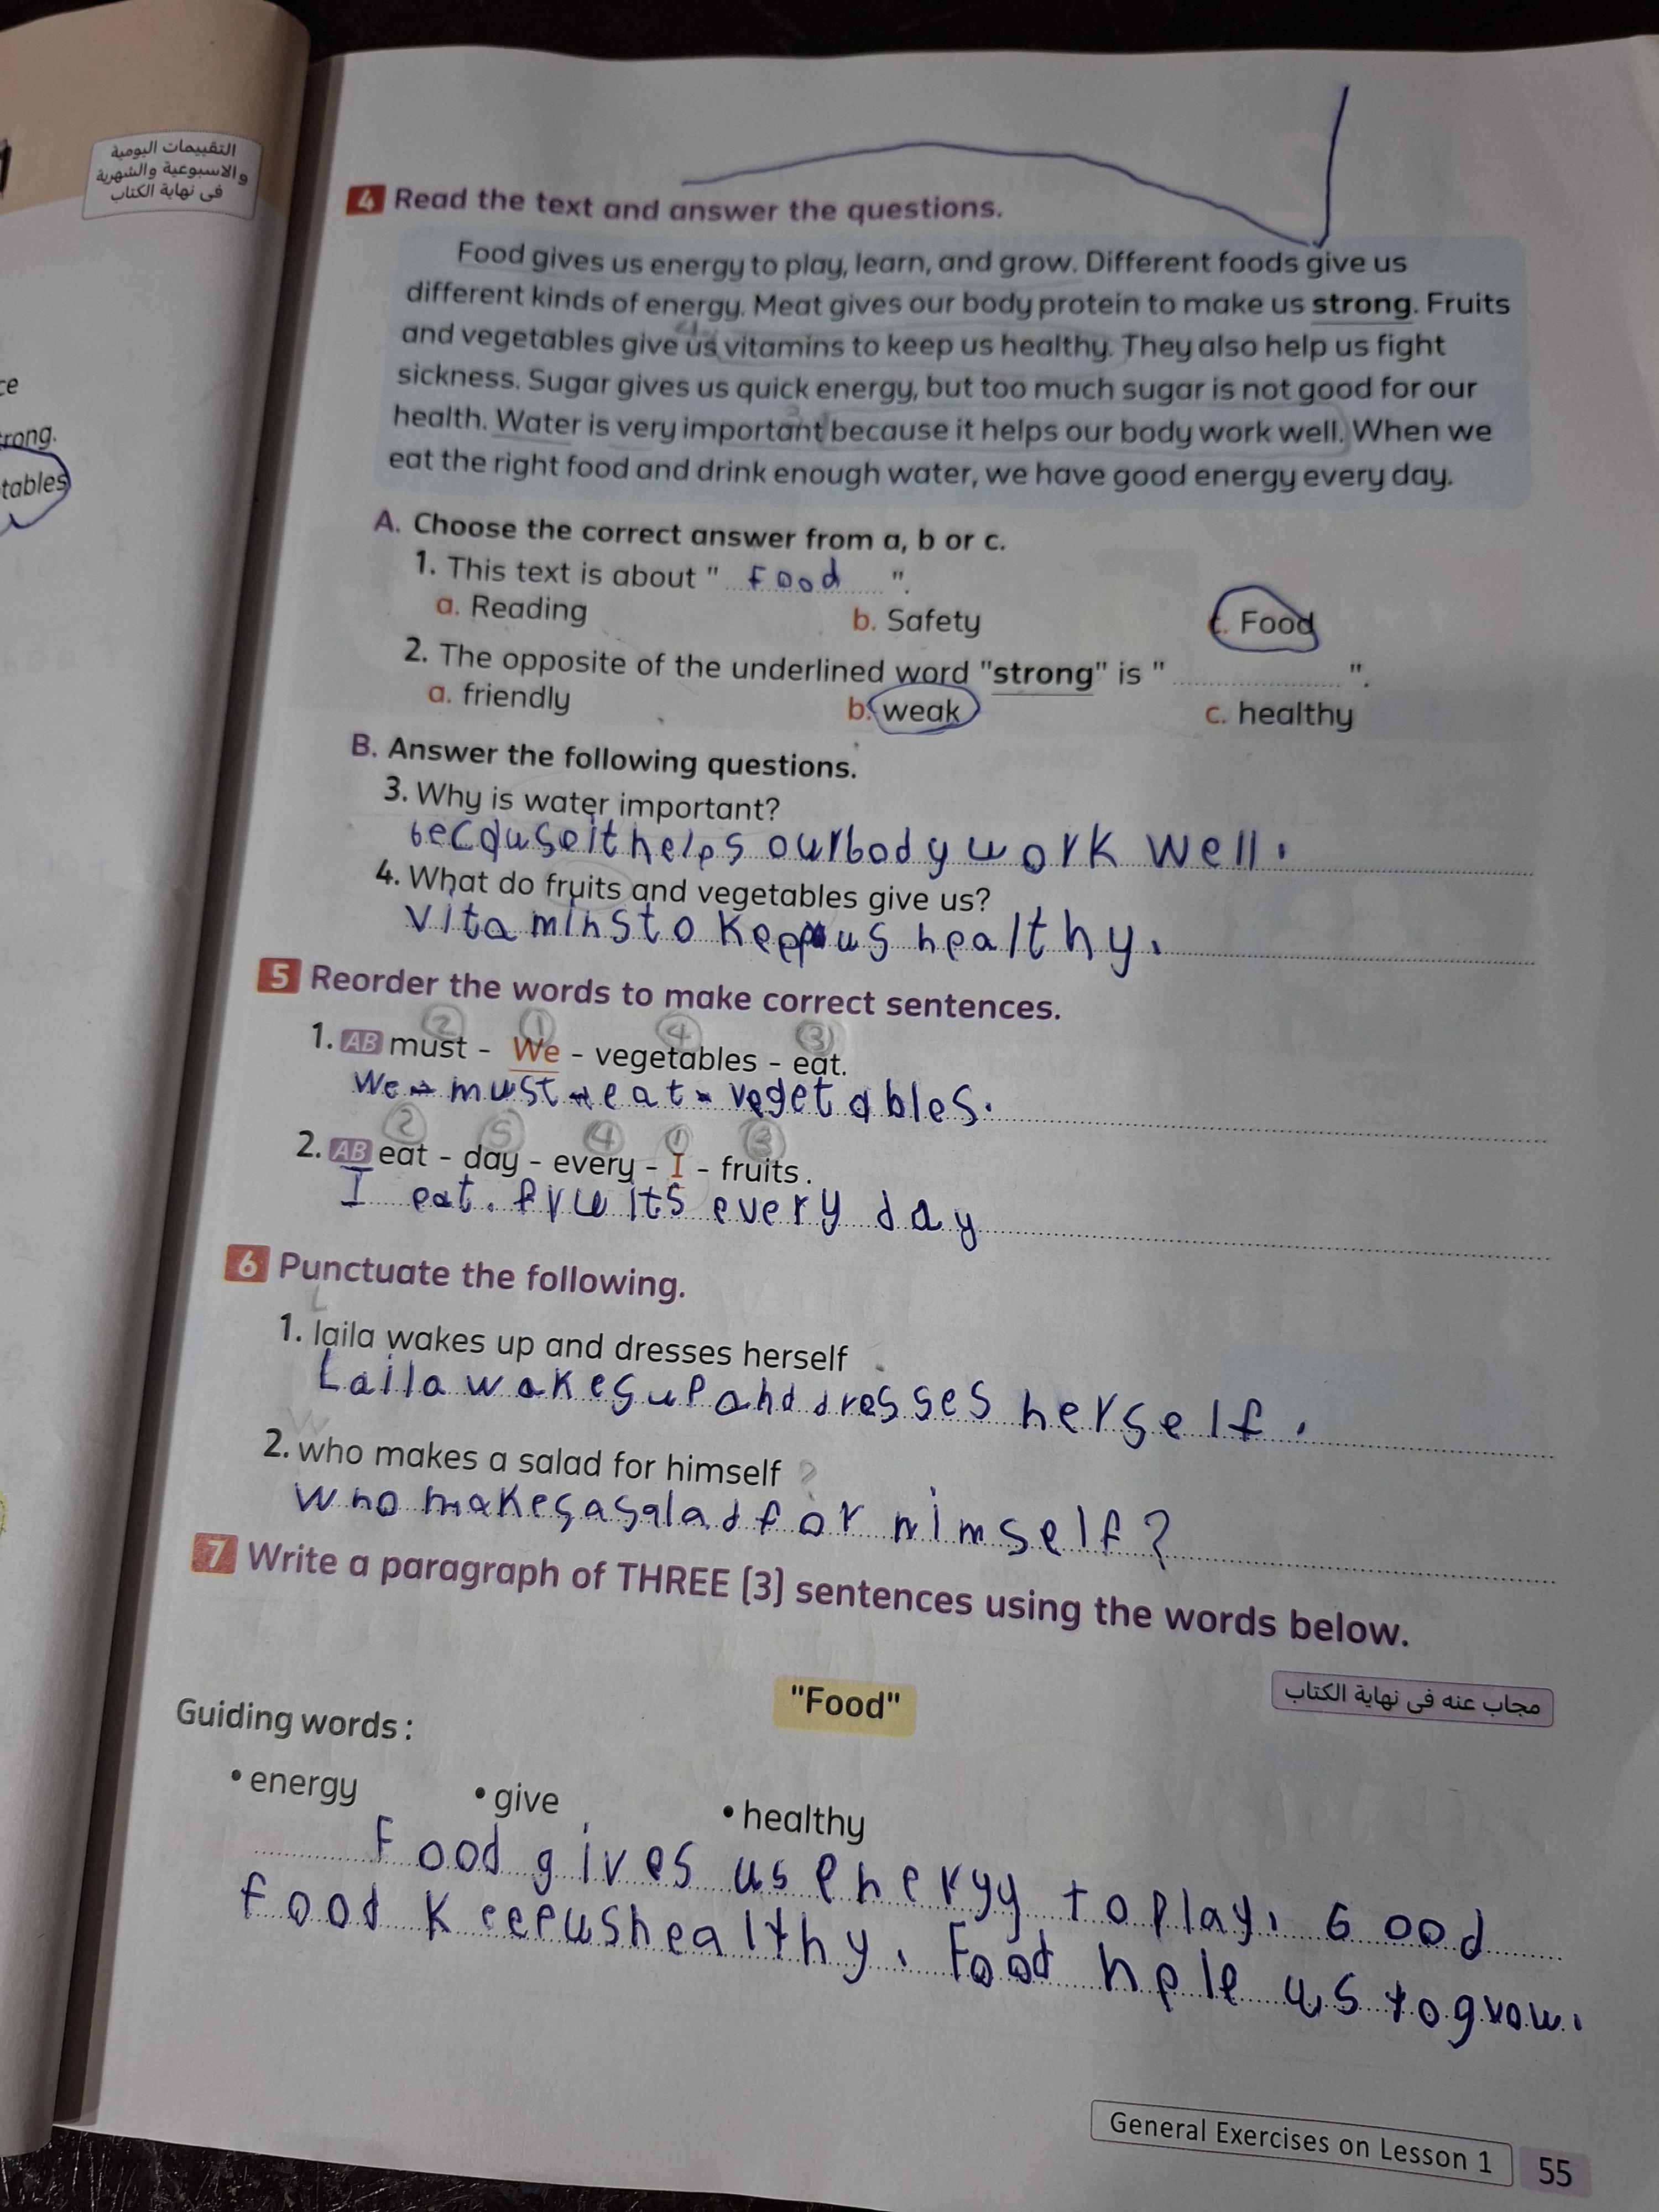 التقييمات اليومية
والاسبوعية والشهرية
فى نهاية الكتاب
rong.
tables
4 Read the text and answer the questions.
Food gives us energy to play, learn, and grow. Different foods give us
different kinds of energy. Meat gives our body protein to make us strong. Fruits
and vegetables give us vitamins to keep us healthy. They also help us fight
sickness. Sugar gives us quick energy, but too much sugar is not good for our
health. Water is very important because it helps our body work well. When we
eat the right food and drink enough water, we have good energy every day.
A. Choose the correct answer from a, b or c.
1. This text is about " Food ".
a. Reading b. Safety c. Food
2. The opposite of the underlined word "strong" is " ".
a. friendly b. weak c. healthy
B. Answer the following questions.
3. Why is water important?
because it helps our body work well.
4. What do fruits and vegetables give us?
vitamins to Keep us healthy.
5 Reorder the words to make correct sentences.
2 1 4 3
1. AB must - We - vegetables - eat.
We - must - eat - vegetables.
2 5 4 1 3
2. AB eat - day - every - I - fruits.
I eat. fruits every day
6 Punctuate the following.
L
1. laila wakes up and dresses herself
Laila wakes up and dresses herself.
W
2. who makes a salad for himself ?
Who makes a salad for himself?
7 Write a paragraph of THREE (3) sentences using the words below.
"Food"
مجاب عنه فى نهاية الكتاب
Guiding words :
• energy • give • healthy
Food gives us energy to play. Good
food Keep us healthy. Food hple us to grow.
General Exercises on Lesson 1 55